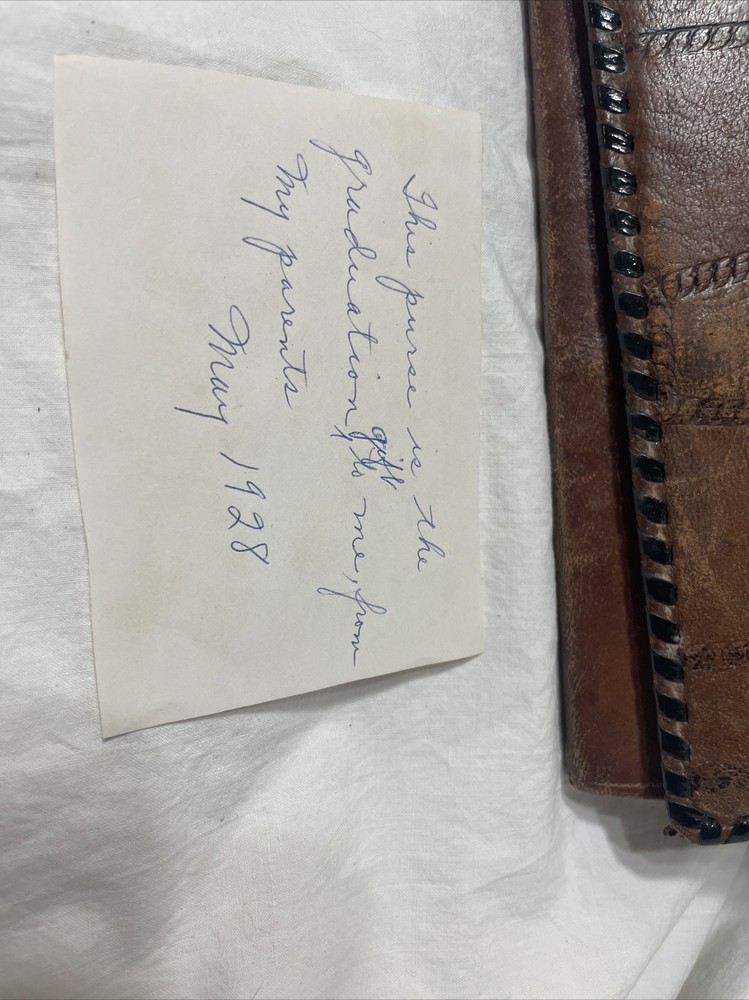 This purse is the
graduation gift to me, from
My parents
May 1928